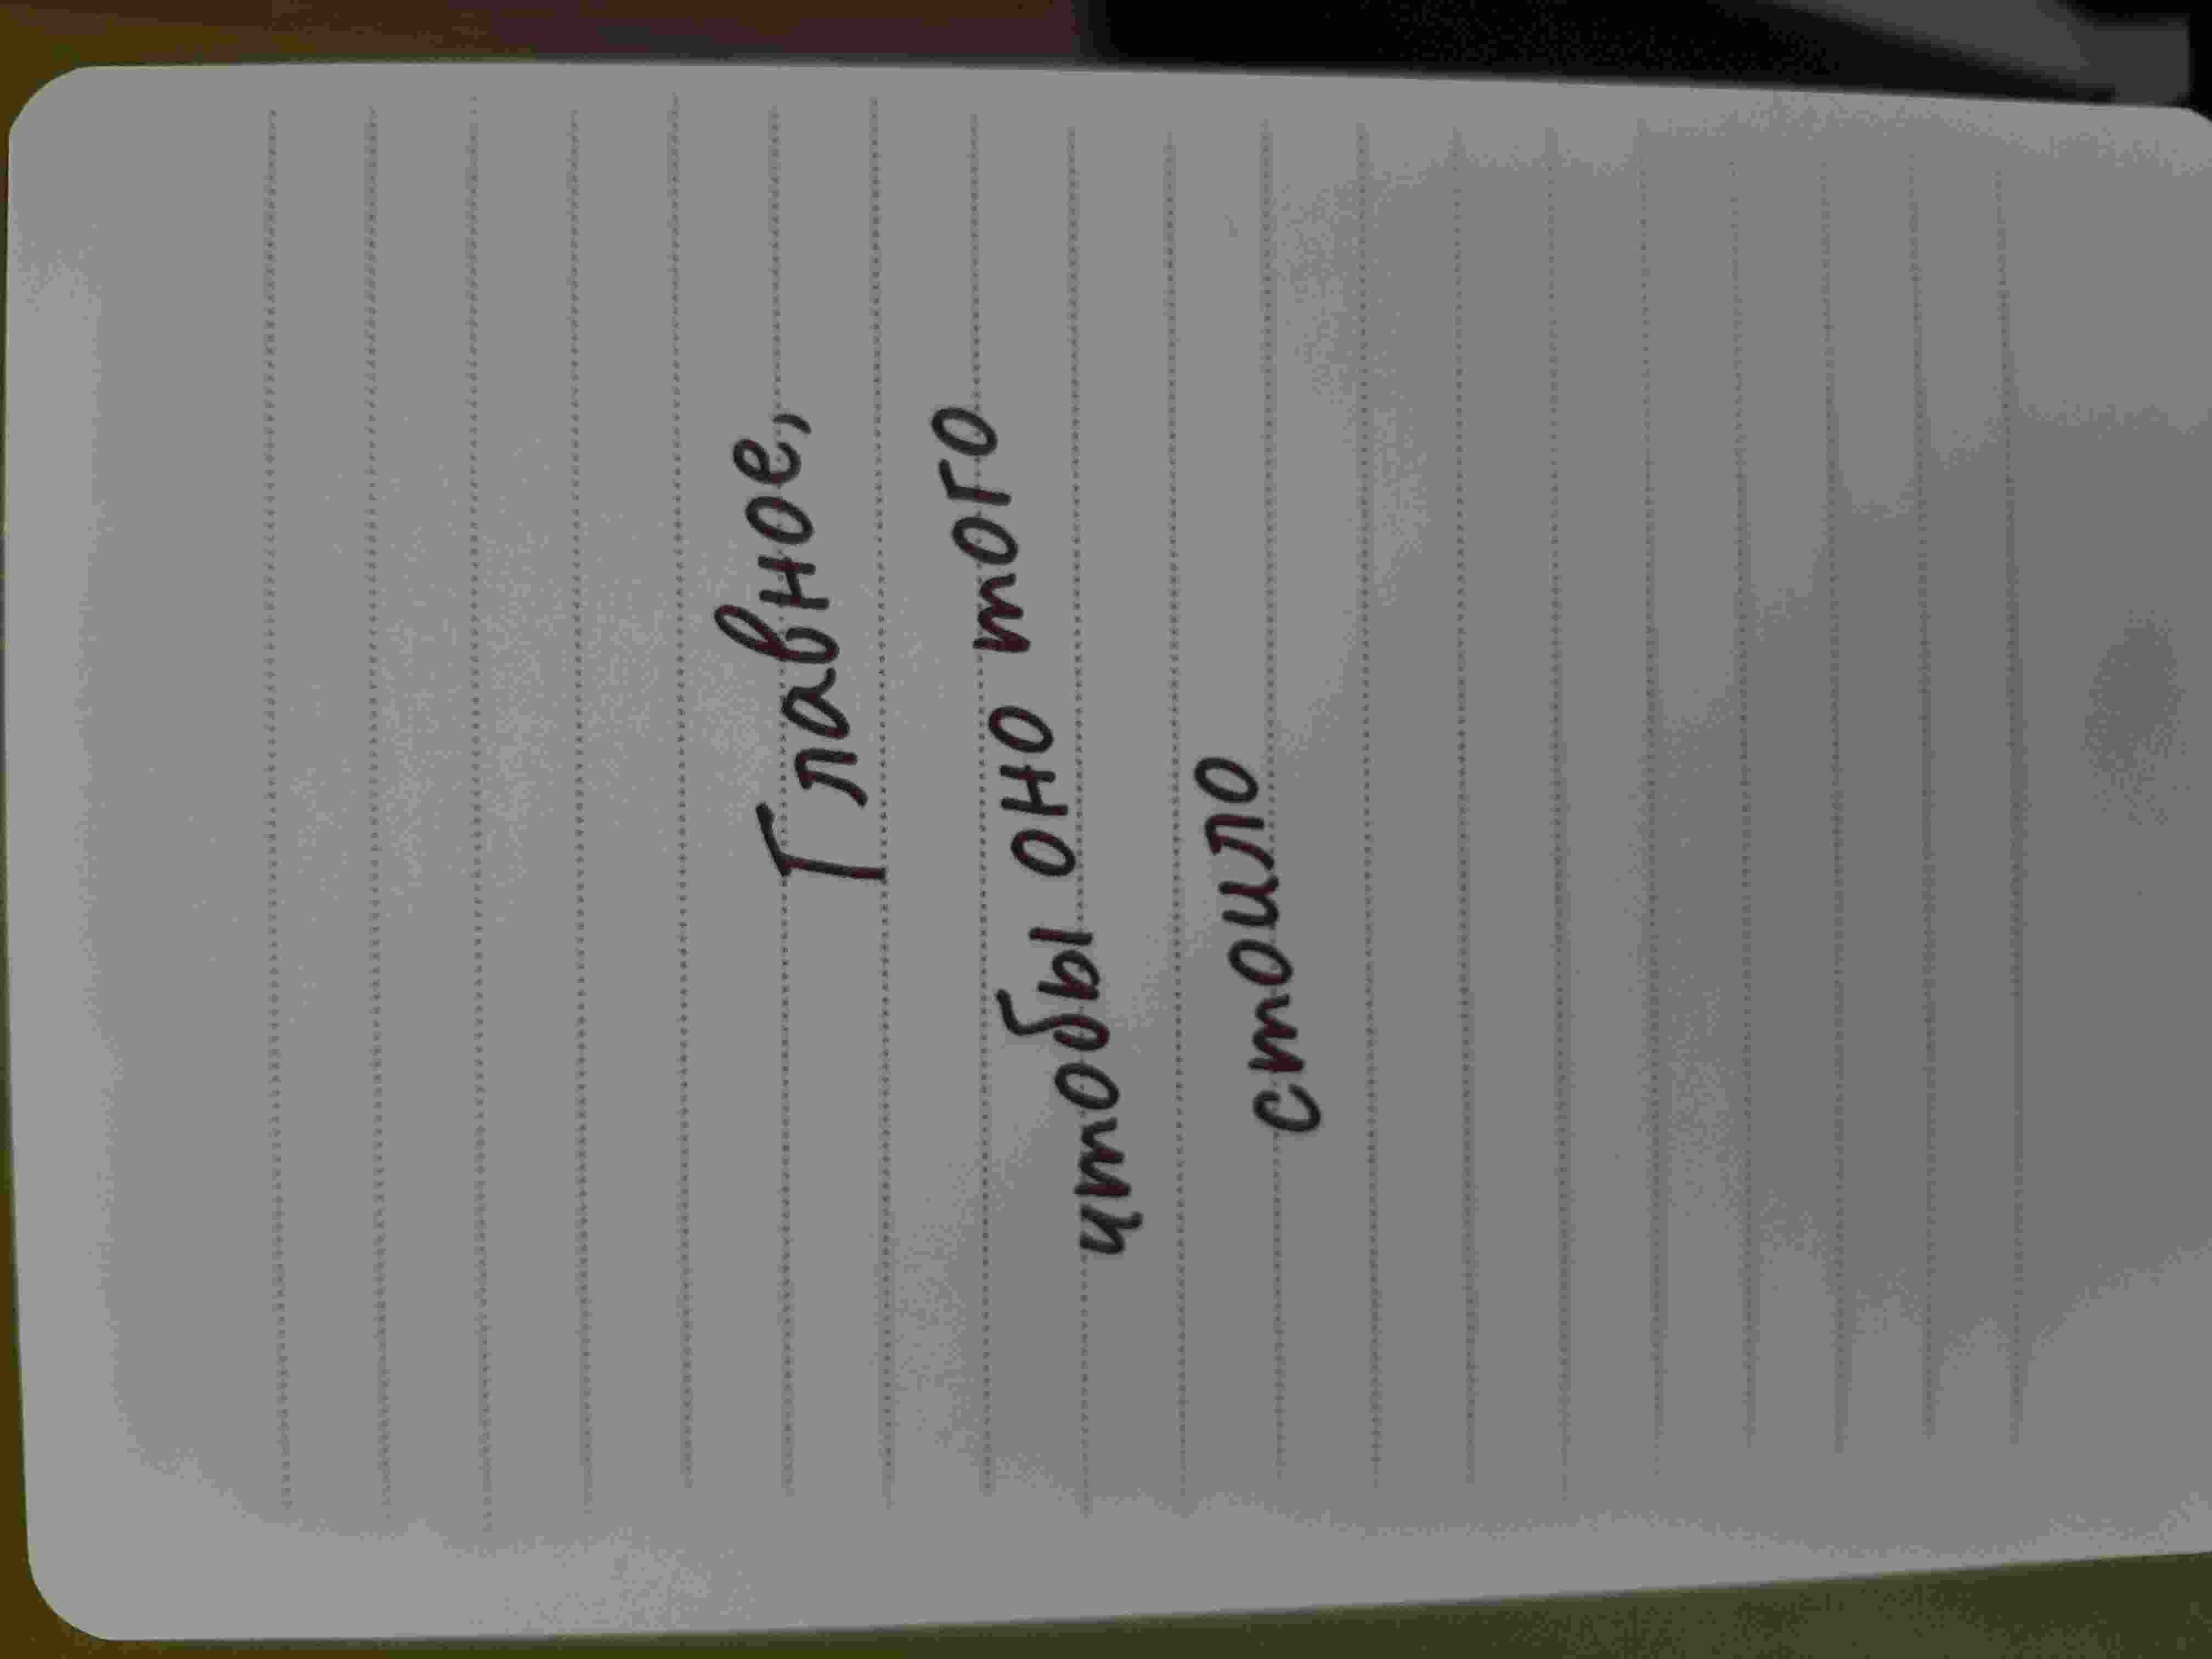 Главное,
чтобы оно того
стоило